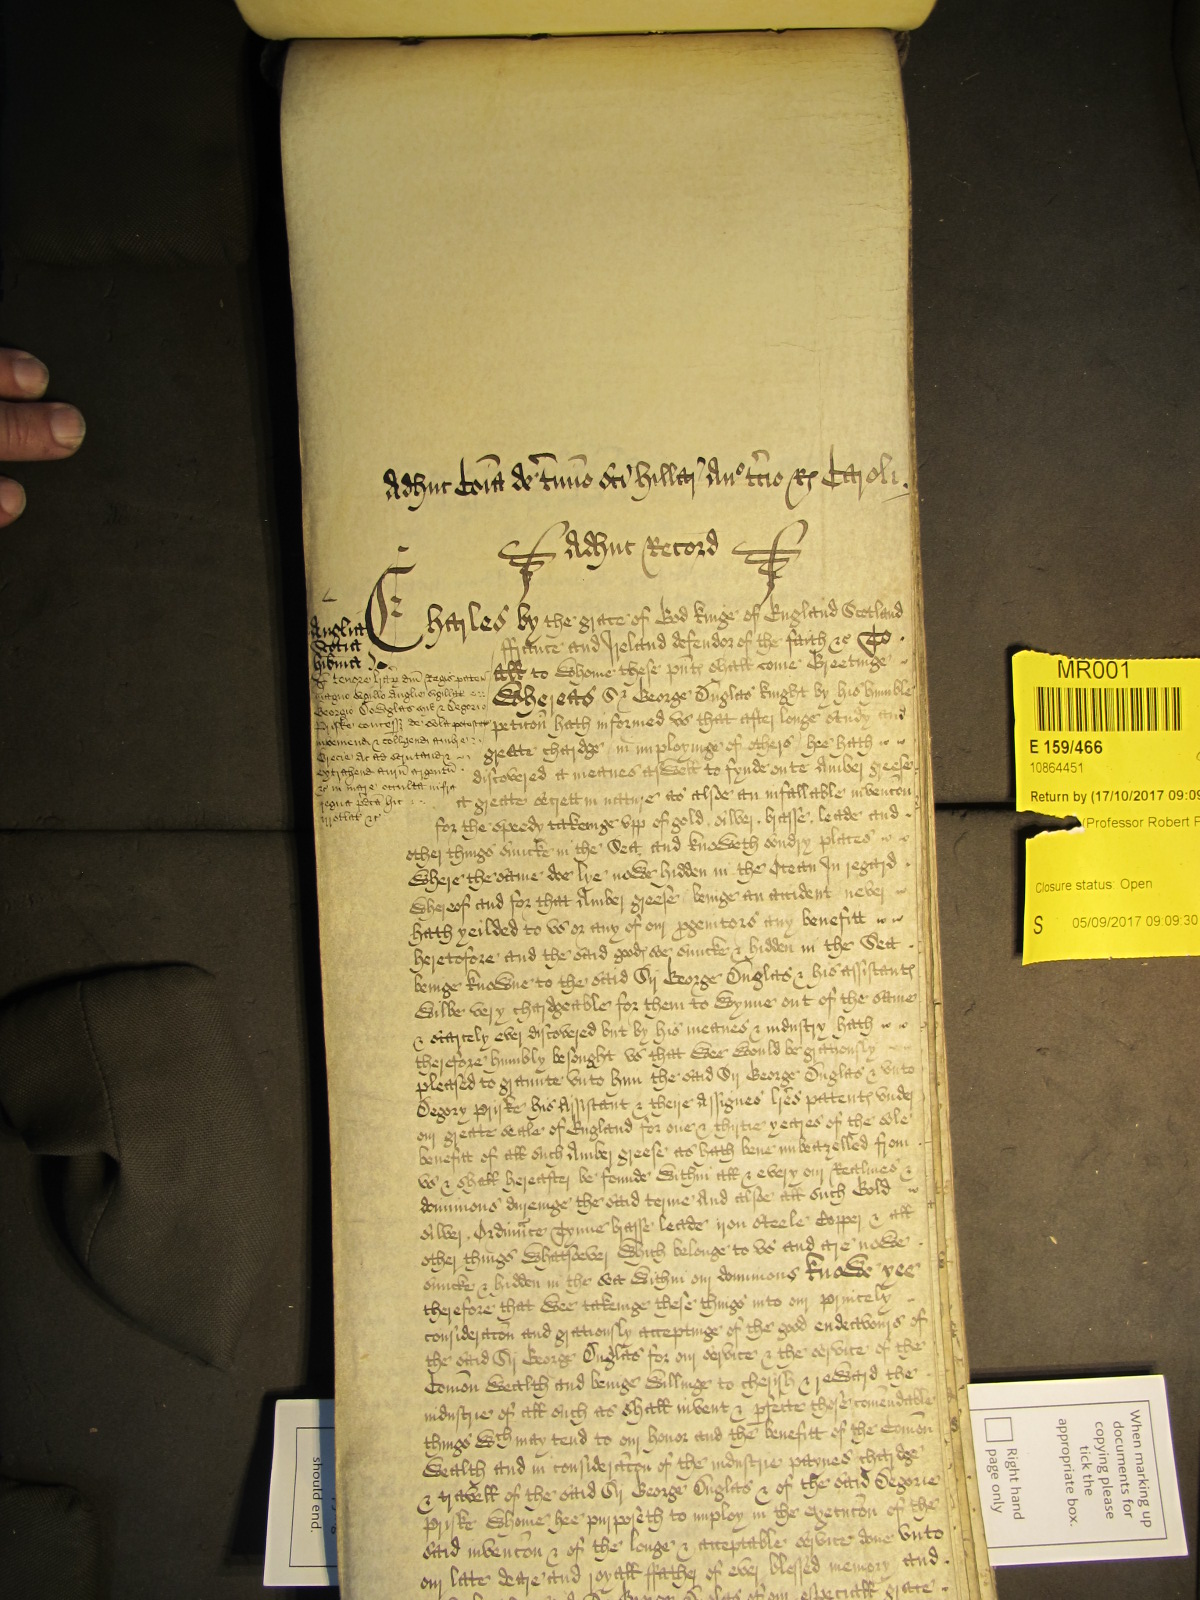 Adhuc Coia de Timno Sci Hillar Anno tcio Rs Caroli.
Adhuc Record
Charles by the grace of God kinge of England Scotland
ffrance and Ireland defendor of the faith &c To
all to whome these pnts shall come Greetinge
Whereas Sr George Duglas knight by his humble
peticon hath informed vs that after longe study and
greate chardge in imployinge of others hee hath
discovered a meanes aswell to fynde oute Amber greese
a greate secrett in nature as alsoe an infallable invencon
for the speedy takeinge vpp of gold silver brasse leade and
other things suncke in the Sea and knoweth sondry places
where the same doe lye nowe hidden in the Ocean In regard
whereof and for that Amber greese beinge an accident never
hath yeilded to vs or any of our progenitors any benefitt
heretofore and the said goods soe suncke & hidden in the Sea
beinge knowne to the said Sr George Duglas & his assistants
wilbe very chardgeable for them to wynne out of the same
& scarcely ever discovered but by his meanes & industry hath
therefore humbly besought vs that wee would be gratiously
pleased to graunte vnto him the said Sr George Duglas & vnto
Degory Priske his Assistant & theire Assignes lres patents vnder
our greate seale of England for one & thirtie yeares of the sole
benefitt of all such Amber greese as hath bene imbeazelled from
vs & shall hereafter be founde within all & every our Realmes &
dominions dureinge the said terme And alsoe all such Gold
silver Ordinnce Tynne brasse leade iron steele Copper & all
other things whatsoever which belonge to vs and are nowe
suncke & hidden in the sea within our dominions knowe yee
therefore that wee takeinge these things into our princely
consideracon and gratiously acceptinge of the good endeavours of
the said Sr George Duglas for our service & the service of the
Comon wealth and beinge willinge to cherish & reward the
industrie of all such as shall invent & pfecte these comendable
things wch may tend to our honor and the benefitt of the Comon
Wealth and in consideracon of the industrie paynes chardge
& travell of the said Sr George Duglas & of the said Degorie
Priske whome hee purposeth to imploy in the execucon of the
said invencon & of the longe & acceptable service done vnto
our late deare and royall ffather of ever blessed memory and
Anglia
Scotia
Hibnia
MR001
E 159/466
10864451
Return by (17/10/2017 09:09
(Professor Robert P
Closure status: Open
S 05/09/2017 09:09:30
When marking up
documents for
copying please
tick the
appropriate box.
Right hand
page only
should end.